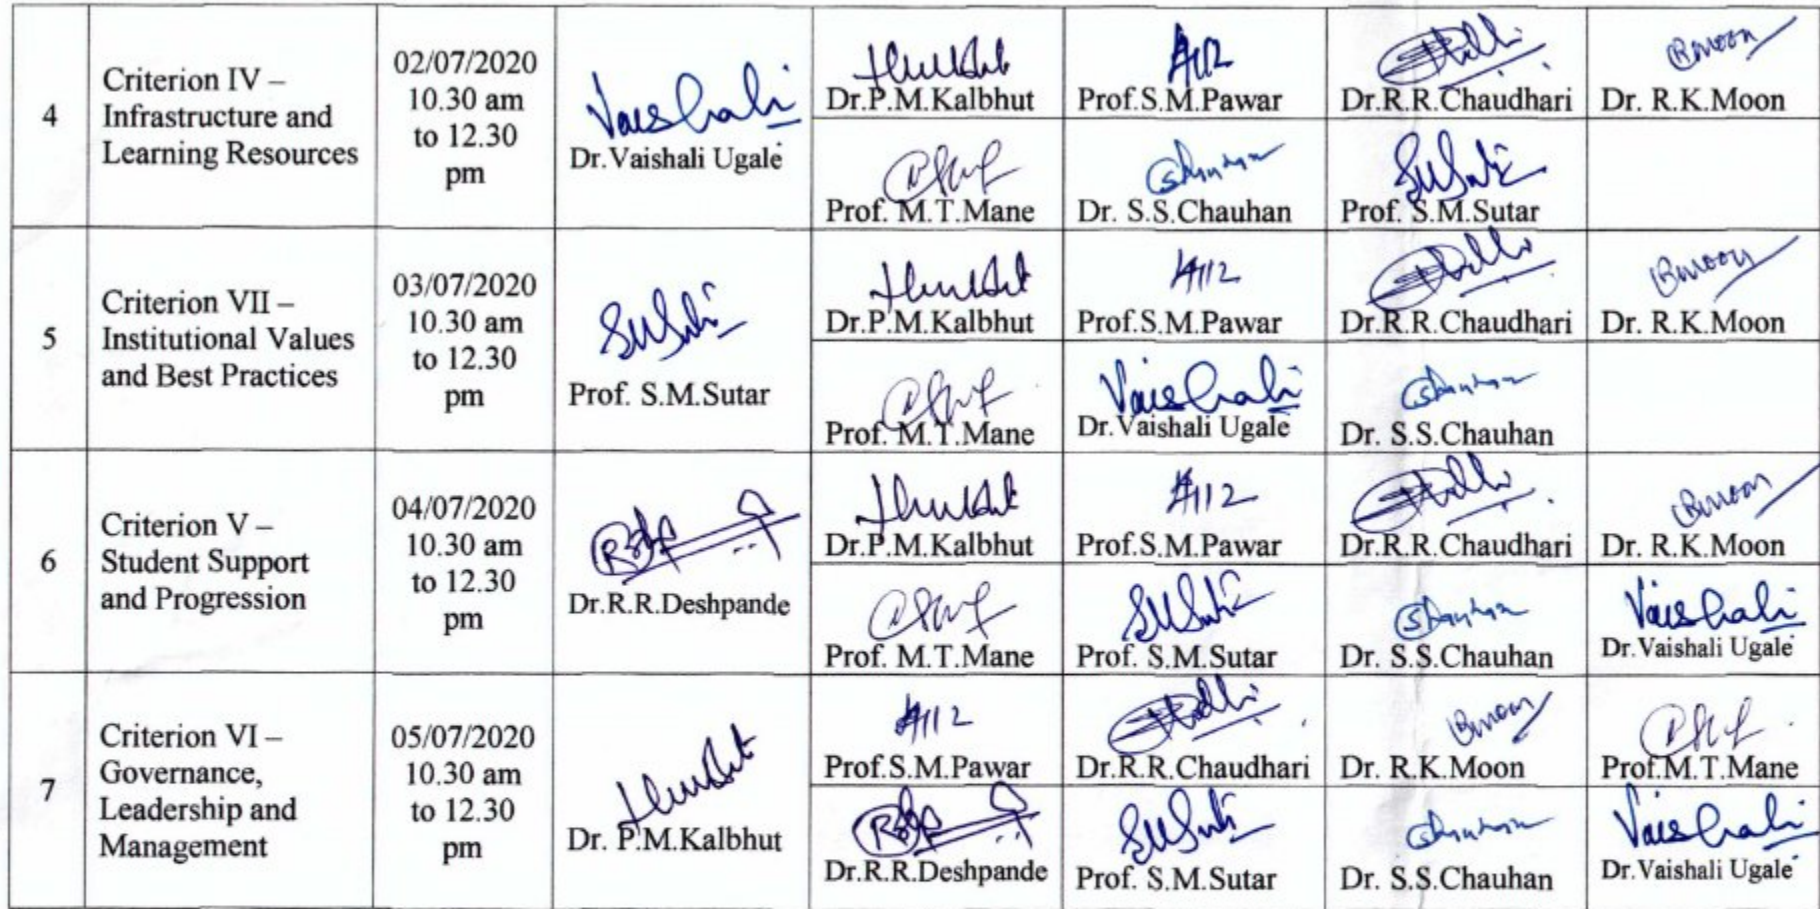 4
Criterion IV –
Infrastructure and
Learning Resources
02/07/2020
10.30 am
to 12.30
pm
Vaishali
Dr.Vaishali Ugale
Dr.P.M.Kalbhut
Prof.S.M.Pawar
Dr.R.R.Chaudhari
RMoon
Dr. R.K.Moon
Prof. M.T.Mane
Dr. S.S.Chauhan
Prof. S.M.Sutar
5
Criterion VII –
Institutional Values
and Best Practices
03/07/2020
10.30 am
to 12.30
pm
Prof. S.M.Sutar
Dr.P.M.Kalbhut
Prof.S.M.Pawar
Dr.R.R.Chaudhari
RMoon
Dr. R.K.Moon
Prof. M.T.Mane
Vaishali
Dr.Vaishali Ugale
Dr. S.S.Chauhan
6
Criterion V –
Student Support
and Progression
04/07/2020
10.30 am
to 12.30
pm
Dr.R.R.Deshpande
Dr.P.M.Kalbhut
Prof.S.M.Pawar
Dr.R.R.Chaudhari
RMoon
Dr. R.K.Moon
Prof. M.T.Mane
Prof. S.M.Sutar
Dr. S.S.Chauhan
Vaishali
Dr.Vaishali Ugale
7
Criterion VI –
Governance,
Leadership and
Management
05/07/2020
10.30 am
to 12.30
pm
Dr. P.M.Kalbhut
Prof.S.M.Pawar
Dr.R.R.Chaudhari
RMoon
Dr. R.K.Moon
Prof.M.T.Mane
Dr.R.R.Deshpande
Prof. S.M.Sutar
Dr. S.S.Chauhan
Vaishali
Dr.Vaishali Ugale